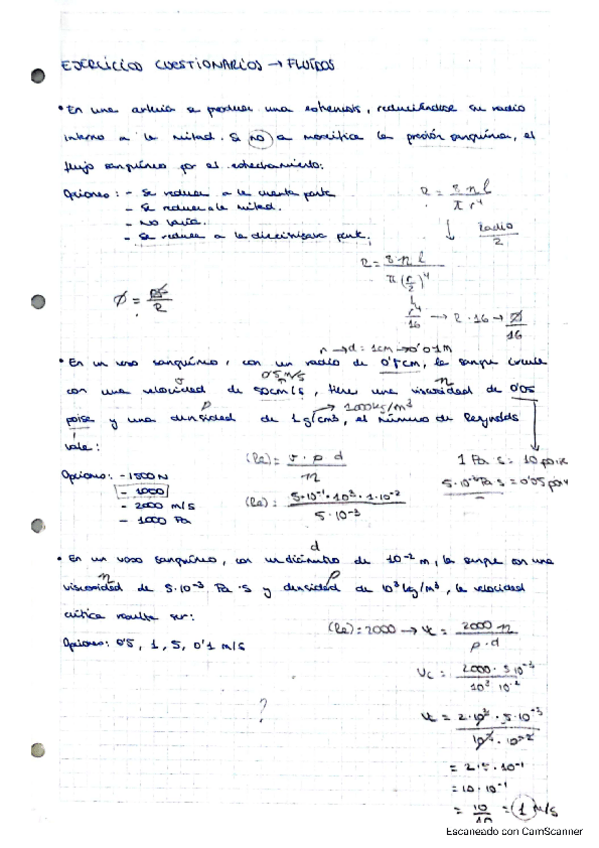 EJERCICIOS CUESTIONARIOS → FLUIDOS
• En una arteria se produce una estenosis, reduciéndose su radio
interno a la mitad. Si no se modifica la presión sanguínea, el
flujo sanguíneo por el estrechamiento:
Opciones: - Se reduce a la cuarta parte
- Se reduce a la mitad.
- No varía.
- Se reduce a la dieciseisava parte.
R = 8 η l / π r⁴
↓ radio / 2
R = 8 η l / π (r/2)⁴
r⁴/16 → R · 16 → ∅/16
∅ = / R
r → d = 1cm → 0'01M
• En un vaso sanguíneo, con un radio de 0'5cm, la sangre circula
0'5 m/s
con una velocidad de 50cm/s, tiene una viscosidad de 0'05
v η
ρ → 1000kg/m³
poise y una densidad de 1g/cm³, el número de Reynolds
vale:
(Re) = v · ρ · d / η
1 Pa s = 10 poise
Opciones: - 1500 N
- 1000
- 2000 m/s
- 1000 Pa
5·10⁻³ Pa s = 0'05 poise
(Re) = 5·10⁻¹·10³·1·10⁻² / 5·10⁻³
d
• En un vaso sanguíneo, con un diámetro de 10⁻² m, la sangre con una
η ρ
viscosidad de 5·10⁻³ Pa·s y densidad de 10³ kg/m³, la velocidad
crítica resulta ser:
(Re) = 2000 → Vc = 2000 · η / ρ · d
Opciones: 0'5, 1, 5, 0'1 m/s
Vc = 2000 · 5 10⁻³ / 10³ 10⁻²
?
Vc = 2·10³ · 5·10⁻³ / 10³ · 10⁻²
= 2·5·10⁻¹
= 10·10⁻¹
= 10/10 = 1 M/s
Escaneado con CamScanner